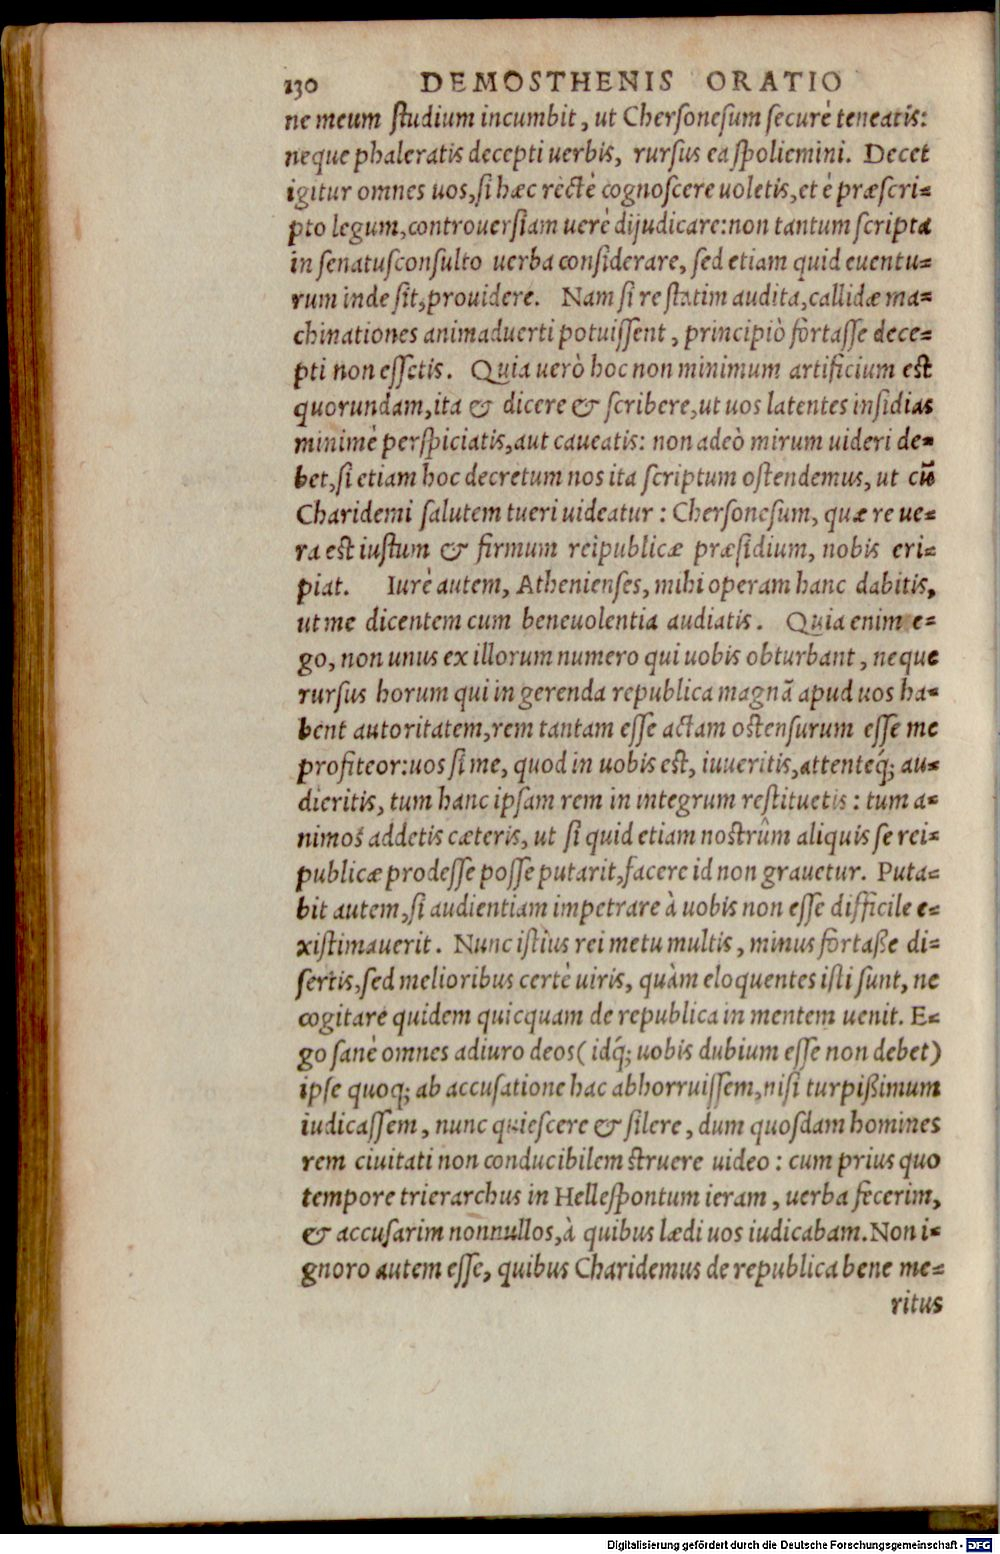 130 DEMOSTHENIS ORATIO
ne meum studium incumbit, ut Chersonesum securè teneatis:
neque phaleratis decepti uerbis, rursus ea spoliemini. Decet
igitur omnes uos, si hæc rectè cognoscere uoletis, et è præscri=
pto legum, controuersiam uerè dijudicare: non tantum scripta
in senatusconsulto uerba considerare, sed etiam quid euentu=
rum inde sit, prouidere. Nam si re statim audita, callidæ ma=
chinationes animaduerti potuissent, principiò fortasse dece=
pti non essetis. Quia uerò hoc non minimum artificium est
quorundam, ita & dicere & scribere, ut uos latentes insidias
minimè perspiciatis, aut caueatis: non adeò mirum uideri de=
bet, si etiam hoc decretum nos ita scriptum ostendemus, ut cũ
Charidemi salutem tueri uideatur: Chersonesum, quæ re ue=
ra est iustum & firmum reipublicæ præsidium, nobis eri=
piat. Iurè autem, Athenienses, mihi operam hanc dabitis,
ut me dicentem cum beneuolentia audiatis. Quia enim e=
go, non unus ex illorum numero qui uobis obturbant, neque
rursus horum qui in gerenda republica magnã apud uos ha=
bent autoritatem, rem tantam esse actam ostensurum esse me
profiteor: uos si me, quod in uobis est, iuueritis, attenteq́; au=
dieritis, tum hanc ipsam rem in integrum restituetis: tum a=
nimos addetis cæteris, ut si quid etiam nostrûm aliquis se rei=
publicæ prodesse posse putarit, facere id non grauetur. Puta=
bit autem, si audientiam impetrare à uobis non esse difficile e=
xistimauerit. Nunc istius rei metu multis, minus fortaße di=
sertis, sed melioribus certè uiris, quàm eloquentes isti sunt, ne
cogitare quidem quicquam de republica in mentem uenit. E=
go sanè omnes adiuro deos (idq́; uobis dubium esse non debet)
ipse quoq; ab accusatione hac abhorruissem, nisi turpißimum
iudicassem, nunc quiescere & silere, dum quosdam homines
rem ciuitati non conducibilem struere uideo: cum prius quo
tempore trierarchus in Hellespontum ieram, uerba fecerim,
& accusarim nonnullos, à quibus lædi uos iudicabam. Non i=
gnoro autem esse, quibus Charidemus de republica bene me=
ritus
Digitalisierung gefördert durch die Deutsche Forschungsgemeinschaft - DFG